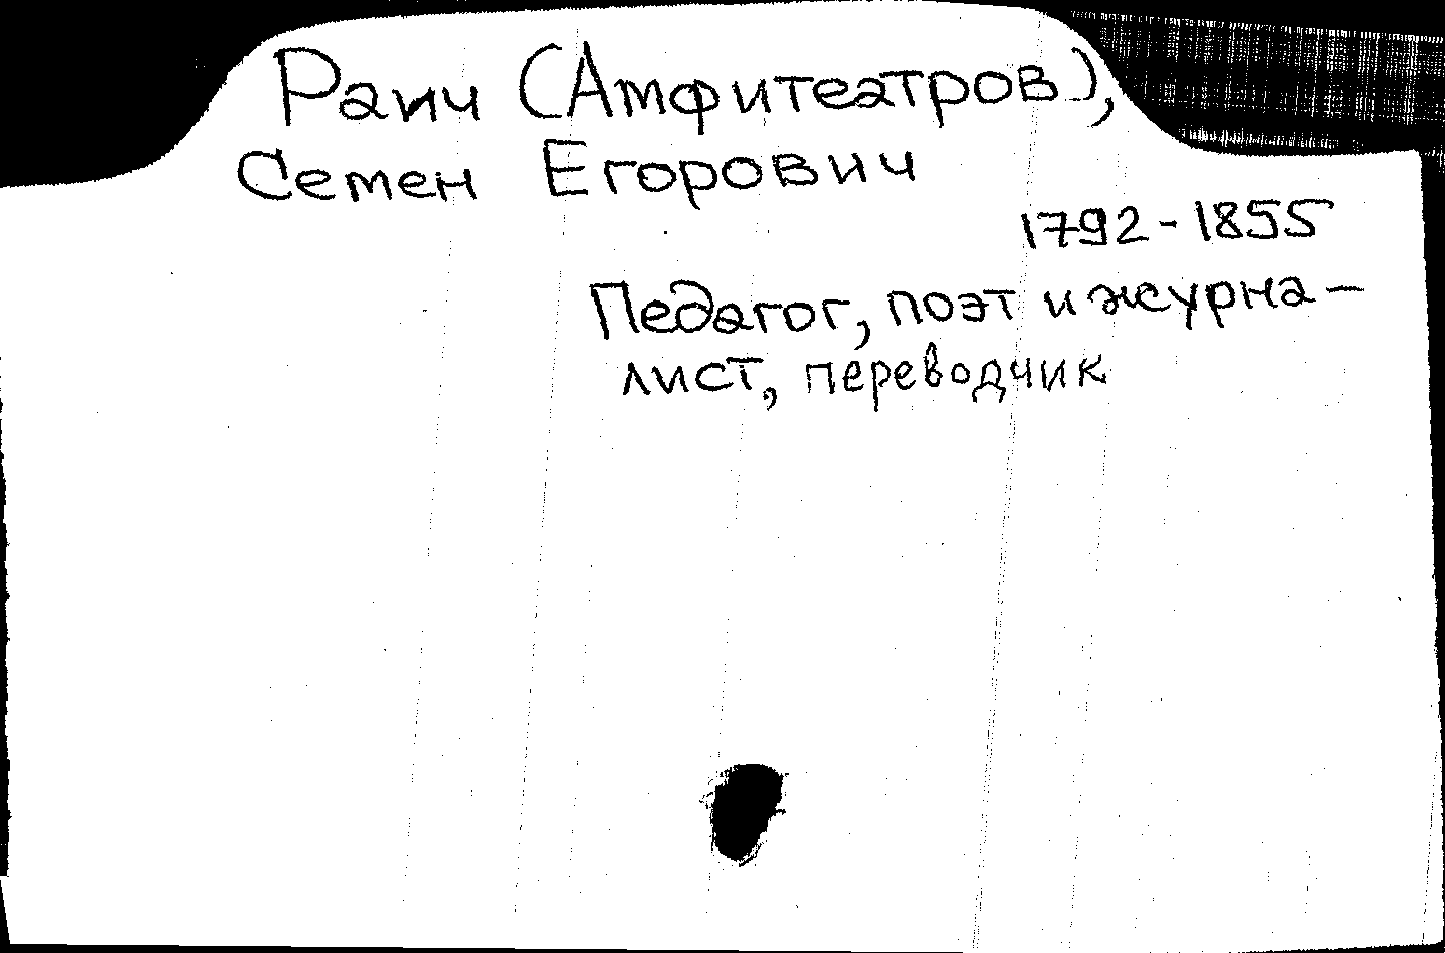 Раич (Амфитеатров),
Семен Егорович
1792-1855
Педагог, поэт и журна-
лист, переводчик